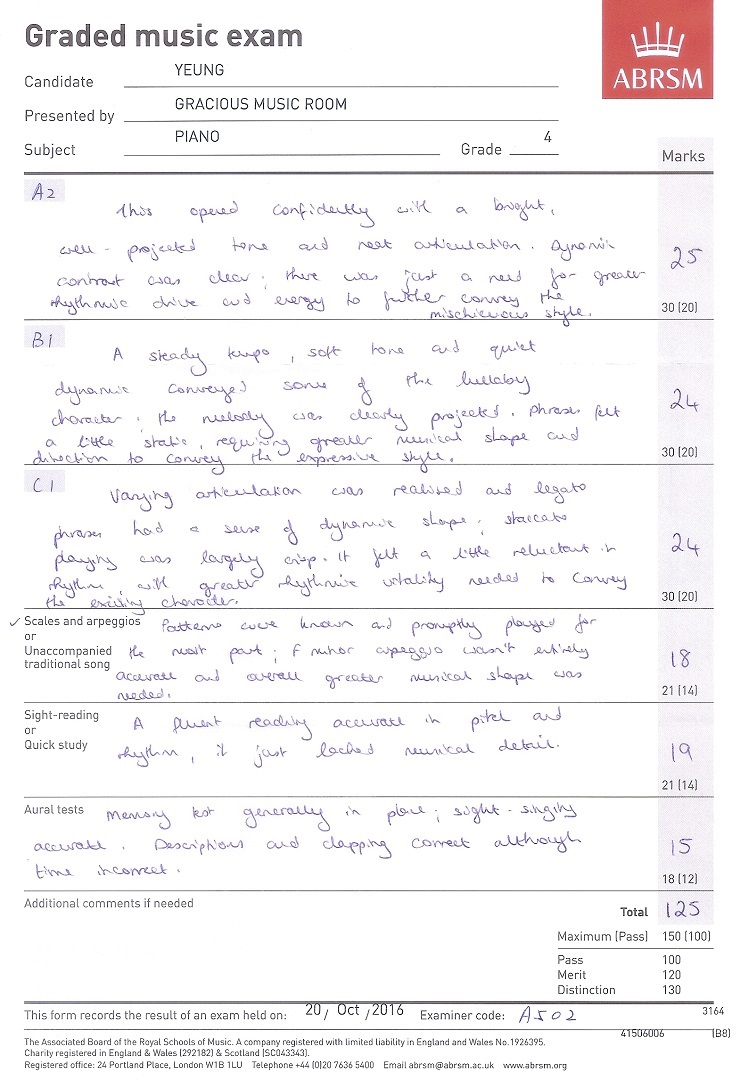 Graded music exam
ABRSM
Candidate YEUNG
Presented by GRACIOUS MUSIC ROOM
Subject PIANO Grade 4
Marks
A2
This opened confidently with a bright,
well-projected tone and neat articulation. Dynamic
contrast was clear; there was just a need for greater
rhythmic drive and energy to further convey the
mischievous style.
25
30 (20)
B1
A steady tempo, soft tone and quiet
dynamic conveyed some of the lullaby
character; the melody was clearly projected. Phrases felt
a little static, requiring greater musical shape and
direction to convey the expressive style.
24
30 (20)
C1
Varying articulation was realised and legato
phrases had a sense of dynamic shape; staccato
playing was largely crisp. It felt a little reluctant in
rhythm, with greater rhythmic vitality needed to convey
the exciting character.
24
30 (20)
✓ Scales and arpeggios
or
Unaccompanied
traditional song
Patterns were known and promptly played for
the most part; F minor arpeggio wasn't entirely
accurate and overall greater musical shape was
needed.
18
21 (14)
Sight-reading
or
Quick study
A fluent reading accurate in pitch and
rhythm, it just lacked musical detail.
19
21 (14)
Aural tests
Memory test generally in place; sight-singing
accurate. Descriptions and clapping correct although
time incorrect.
15
18 (12)
Additional comments if needed
Total 125
Maximum (Pass) 150 (100)
Pass 100
Merit 120
Distinction 130
This form records the result of an exam held on: 20/ Oct /2016 Examiner code: A502
3164
41506006 (B8)
The Associated Board of the Royal Schools of Music. A company registered with limited liability in England and Wales No.1926395.
Charity registered in England & Wales (292182) & Scotland (SC043343).
Registered office: 24 Portland Place, London W1B 1LU Telephone +44 (0)20 7636 5400 Email abrsm@abrsm.ac.uk www.abrsm.org